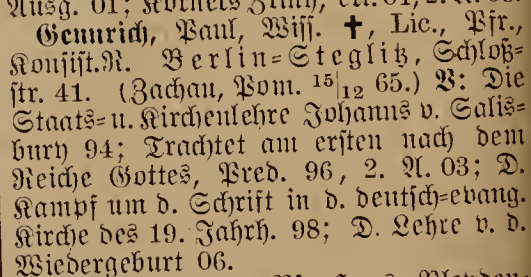 Ausg. 01;
Gennrich, Paul, Wiss. ✝, Lic., Pfr.,
Konsist.R. Berlin=Steglitz, Schloß=
str. 41. (Zachau, Pom. 15|12 65.) V: Die
Staats= u. Kirchenlehre Johanns v. Salis=
bury 94; Trachtet am ersten nach dem
Reiche Gottes, Pred. 96, 2. A. 03; D.
Kampf um d. Schrift in d. deutsch=evang.
Kirche des 19. Jahrh. 98; D. Lehre v. d.
Wiedergeburt 06.